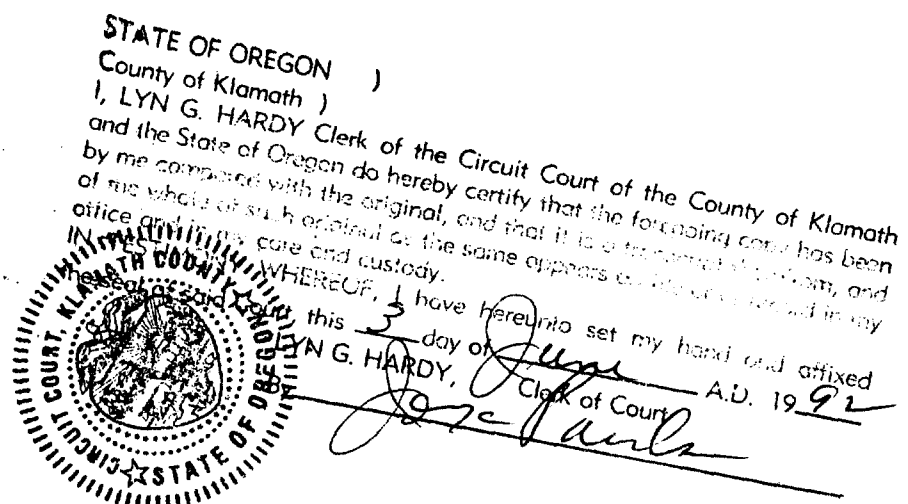 STATE OF OREGON )
County of Klamath )
I, LYN G. HARDY Clerk of the Circuit Court of the County of Klamath
and the State of Oregon do hereby certify that the foregoing copy has been
by me compared with the original, and that it is a transcript therefrom, and
of the whole of such original as the same appears on file or record in my
office and in my care and custody.
IN TEST WHEREOF, I have hereunto set my hand and affixed
the seal of said Court, this 3 day of June A.D. 1992
LYN G. HARDY, Clerk of Court
By
CIRCUIT COURT, KLAMATH COUNTY
STATE OF OREGON